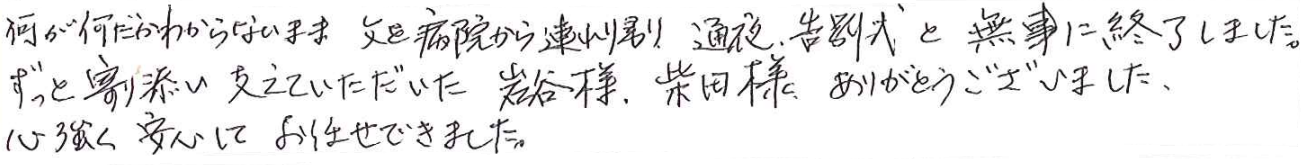 何が何だかわからないまま 父を病院から連れり帰り 通夜、告別式と 無事に終了しました。
ずっと寄り添い 支えていただいた 岩谷様、柴田様、ありがとうございました、
心強く 安心して お任せできました。